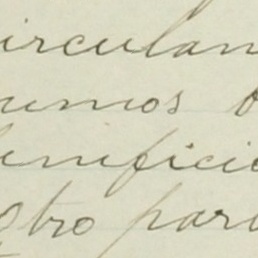 irculan
umos
enificio
Otro par